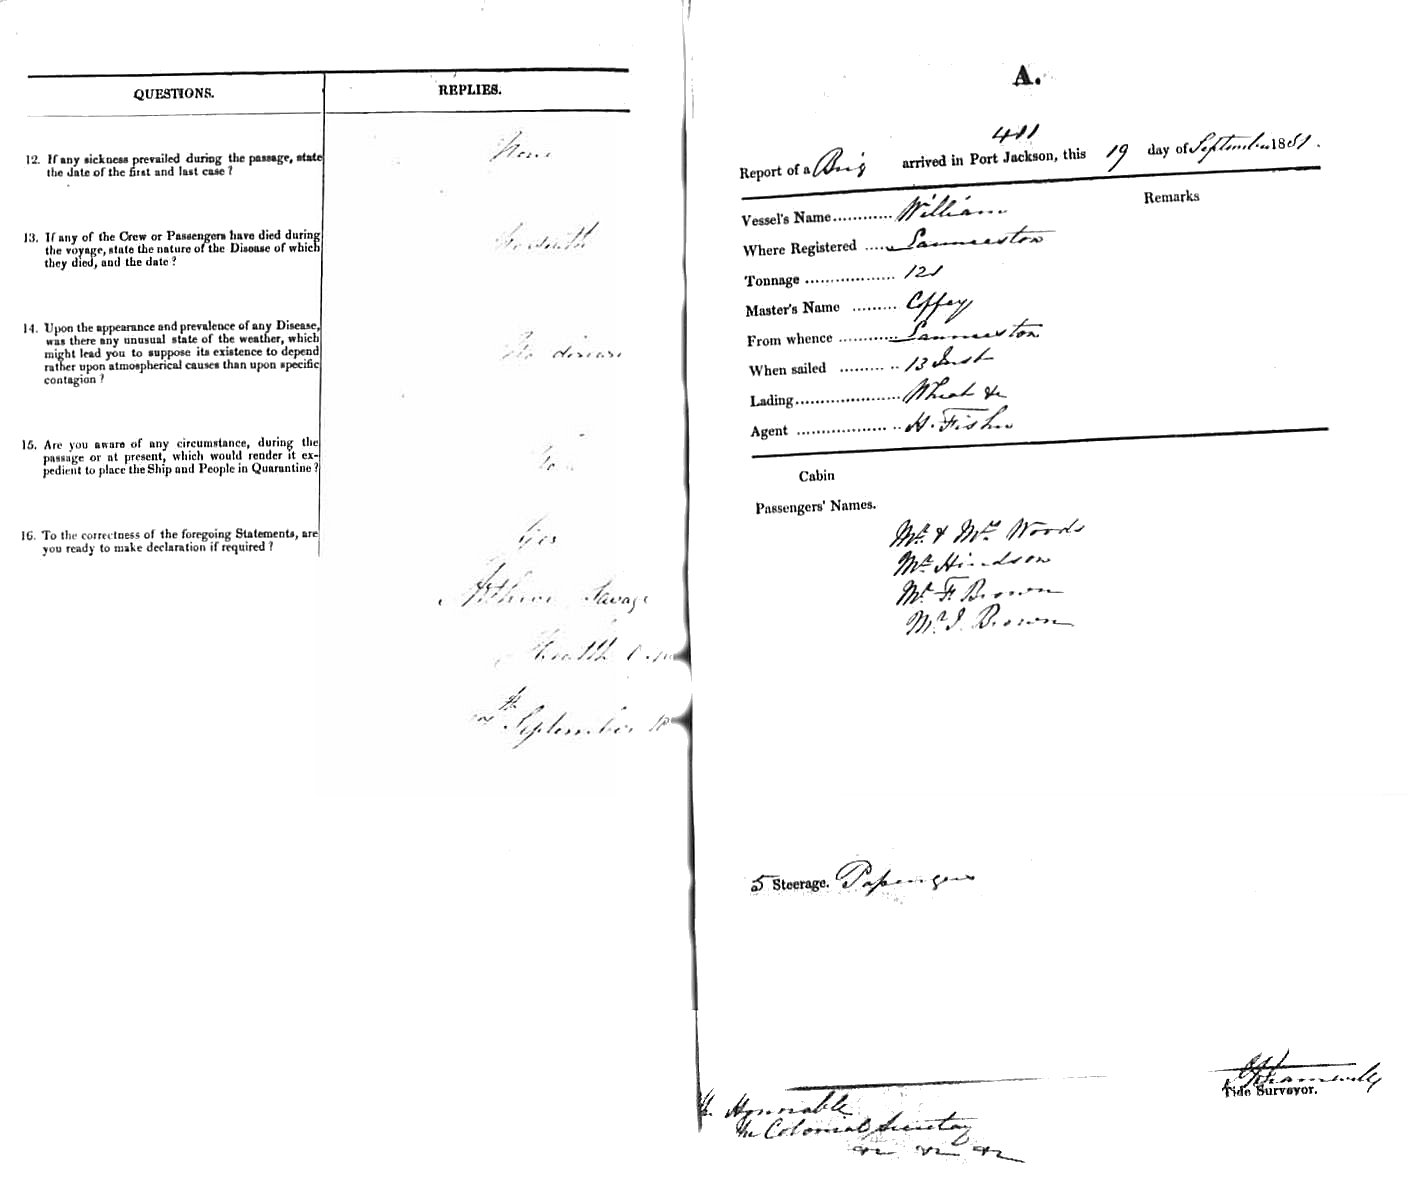 QUESTIONS.
REPLIES.
12. If any sickness prevailed during the passage, state
the date of the first and last case ?
None
13. If any of the Crew or Passengers have died during
the voyage, state the nature of the Disease of which
they died, and the date ?
No death
14. Upon the appearance and prevalence of any Disease,
was there any unusual state of the weather, which
might lead you to suppose its existence to depend
rather upon atmospherical causes than upon specific
contagion ?
No disease
15. Are you aware of any circumstance, during the
passage or at present, which would render it ex-
pedient to place the Ship and People in Quarantine ?
No
16. To the correctness of the foregoing Statements, are
you ready to make declaration if required ?
Yes
Arthur Savage
Health
September 18
A.
411
Report of a Brig arrived in Port Jackson, this 19 day of September 1851.
Remarks
Vessel's Name............ William
Where Registered ..... Launceston
Tonnage .................. 121
Master's Name ......... Coffey
From whence ............ Launceston
When sailed ......... .. 13 Inst
Lading..................... Wheat &c
Agent .................. .. H. Fisher
Cabin
Passengers' Names.
Mr. & Mrs. Woods
Mr. Hindson
Mr. F. Brown
Mr. J. Brown
5 Steerage. Passengers
Tide Surveyor.
The Honorable
The Colonial Secretary
&c &c &c